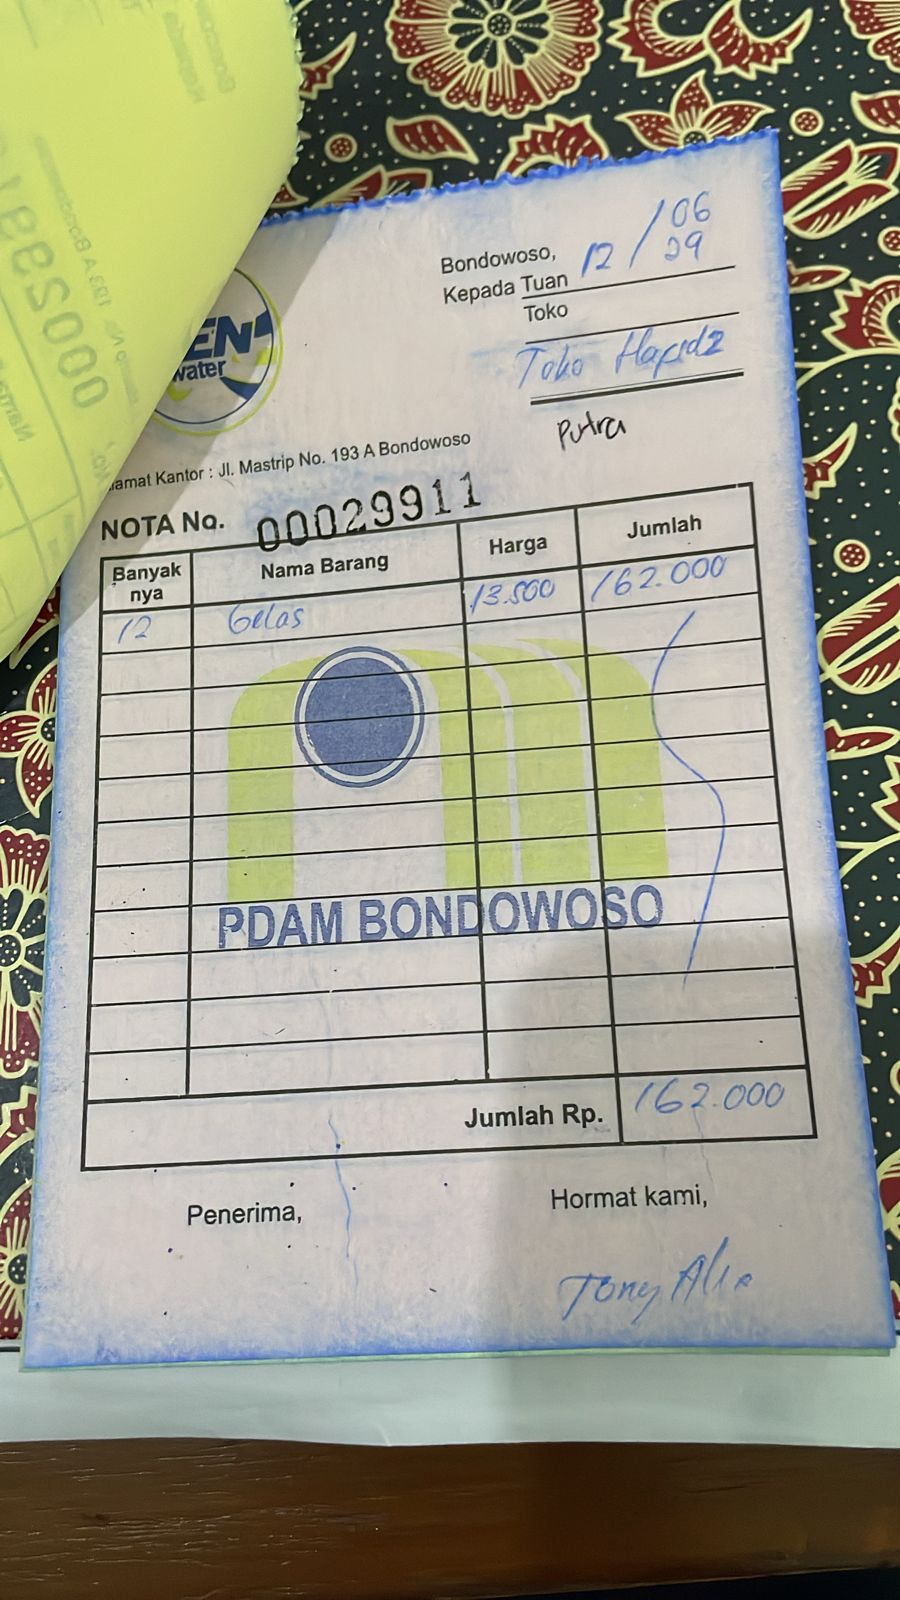 Bondowoso, 12 / 06
29
Kepada Tuan
Toko
Toko Hafidz
Putra
EN
water
amat Kantor : Jl. Mastrip No. 193 A Bondowoso
NOTA No. 00029911
Banyak nya Nama Barang Harga Jumlah
12 Gelas 13.500 162.000
PDAM BONDOWOSO
Jumlah Rp. 162.000
Penerima, Hormat kami,
Tony